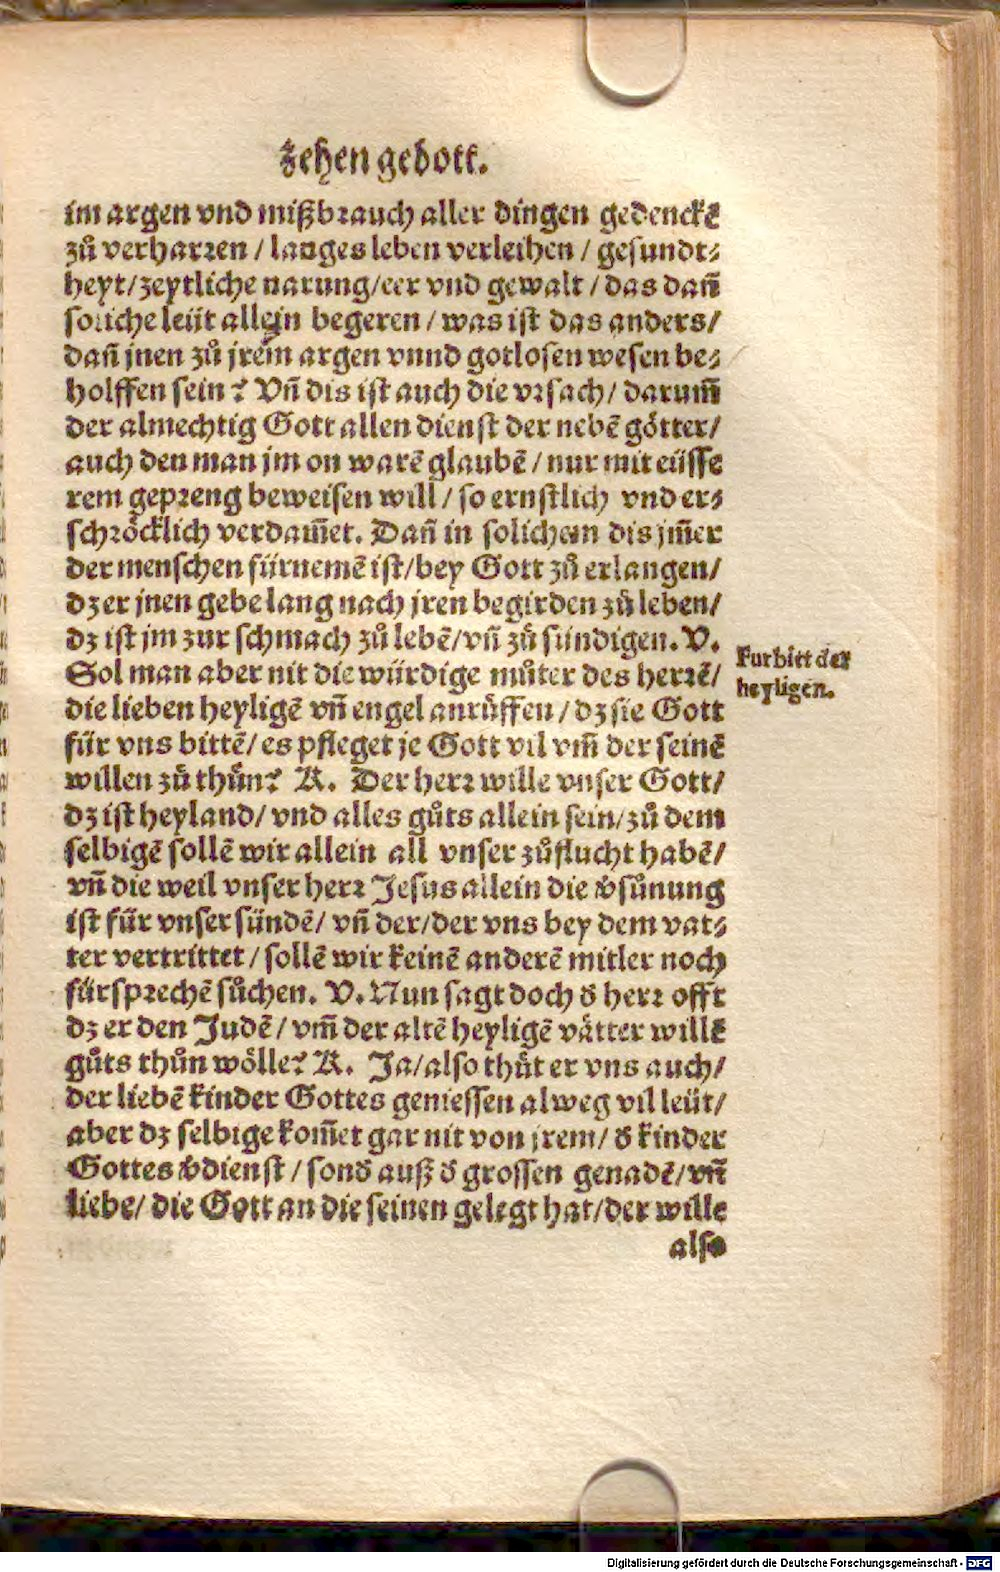 zehen gebott.
im argen vnd mißbrauch aller dingen gedenckẽ
zů verharren / langes leben verleihen / gesundt⸗
heyt/zeytliche narung/eer vnd gewalt / das dañ
soliche leüt allein begeren / was ist das anders/
dañ jnen zů jrem argen vnnd gotlosen wesen be⸗
holffen sein? Vñ dis ist auch die vrsach/ darum̃
der almechtig Gott allen dienst der nebẽ götter/
auch den man jm on warẽ glaubẽ / nur mit eüsse
rem gepreng beweisen will / so ernstlich vnd er⸗
schröcklich verdam̃et. Dañ in solichem dis jm̃er
der menschen fürnemẽ ist/bey Gott zů erlangen/
dz er jnen gebe lang nach jren begirden zů leben/
dz ist jm zur schmach zů lebẽ/vñ zů sündigen. V.
Sol man aber nit die würdige můter des herrẽ/
die lieben heyligẽ vñ engel anrůffen / dz sie Gott
für vns bittẽ/ es pfleget je Gott vil vm̃ der seinẽ
willen zů thůn? K. Der herr wille vnser Gott/
dz ist heyland/ vnd alles gůts allein sein/zů dem
selbigẽ sollẽ wir allein all vnser zůflucht habẽ/
vñ die weil vnser herr Jesus allein die v̊sůnung
ist für vnser sündẽ/ vñ der/der vns bey dem vat⸗
ter vertrittet / sollẽ wir keinẽ anderẽ mitler noch
fürsprechẽ sůchen. V. Nun sagt doch d̊ herr offt
dz er den Judẽ / vm̃ der altẽ heyligẽ vätter willẽ
gůts thůn wölle? K. Ja/also thůt er vns auch/
der liebẽ kinder Gottes geniessen alweg vil leüt/
aber dz selbige kom̃et gar nit von jrem/ d̊ kinder
Gottes v̊dienst / sond̊ auß d̊ grossen genadẽ/vñ
liebe/ die Gott an die seinen gelegt hat/der wille
also
Furbitt der
heyligen.
Digitalisierung gefördert durch die Deutsche Forschungsgemeinschaft - DFG